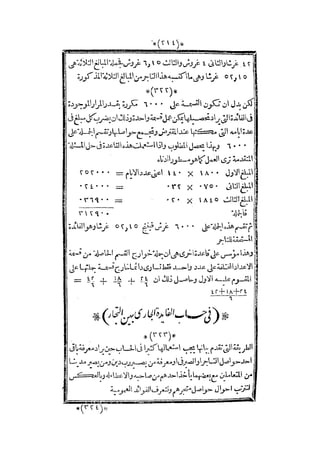 *(٣١٤)*
٤٢ غرشا والثانى ٤ غروش والثالث ٦,١٥ غروش فجملة المبالغ الثلاثة هى
٥٢,١٥ غرشا وهى ما كتسبه هذا التاجر من المبالغ الثلاثة المذكورة
*(٣٢٢)*
لكن بدل ان تكون القسمة على ٦٠٠٠ مكررة بقدر المرار الموجودة
فى الفائدة التى يراد تحصيلها يمكن عمل قسمة واحدة وذلك بان يضرب كل مبلغ فى
عدة ايامه التى مكثتها عند المقترض وتجمع حواصلها وتقسم الجملة على
٦٠٠٠ وبهذا يحصل المطلوب واذا استعملت هذه القاعدة فى حل المسئلة
المتقدمة ترى العمل كما هو مسطور ادناه
المبلغ الاول ١٨٠٠ × ١٤٠ اعنى عدد الايام = ٢٥٢٠٠٠
المبلغ الثانى ٠٧٥٠ × ٠٣٢ = ٠٢٤٠٠٠
المبلغ الثالث ١٨٤٥ × ٠٢٠ = ٠٣٦٩٠٠
فالجملة ٣١٢٩٠٠
ثم تقسم هذه الجملة على ٦٠٠٠ غرش فينتج ٥٢,١٥ غرشا وهو الفائدة
المستحقة للتاجر
وهذا مؤسس على قاعدة اخرى هى ان جملة خوارج القسم الحاصلة من قسمة
الاعداد المختلفة على عدد واحد فقط تساوى دائما خارج قسمة جملتها على
المقسوم عليه الاول وحاصل ذلك ان
*(فى حساب الفايدة الجارى بين التجار)*
*(٣٢٣)*
الطريقة التى تقدم بيانها يجب استعمالها كثيرا فى الحساب حين يراد معرفة باقى
احد حواصل التاجر او الصرفى او معرفة من يصير رب دين ومن يصير مدينا
من المتعاملين مع بعضهما باخذ احدهم من صاحبه والاعطاء له وبالعكس
لترتب احوال حواصل متجرهم وتعرف الفوائد العمومية
*(٣٢٤)*